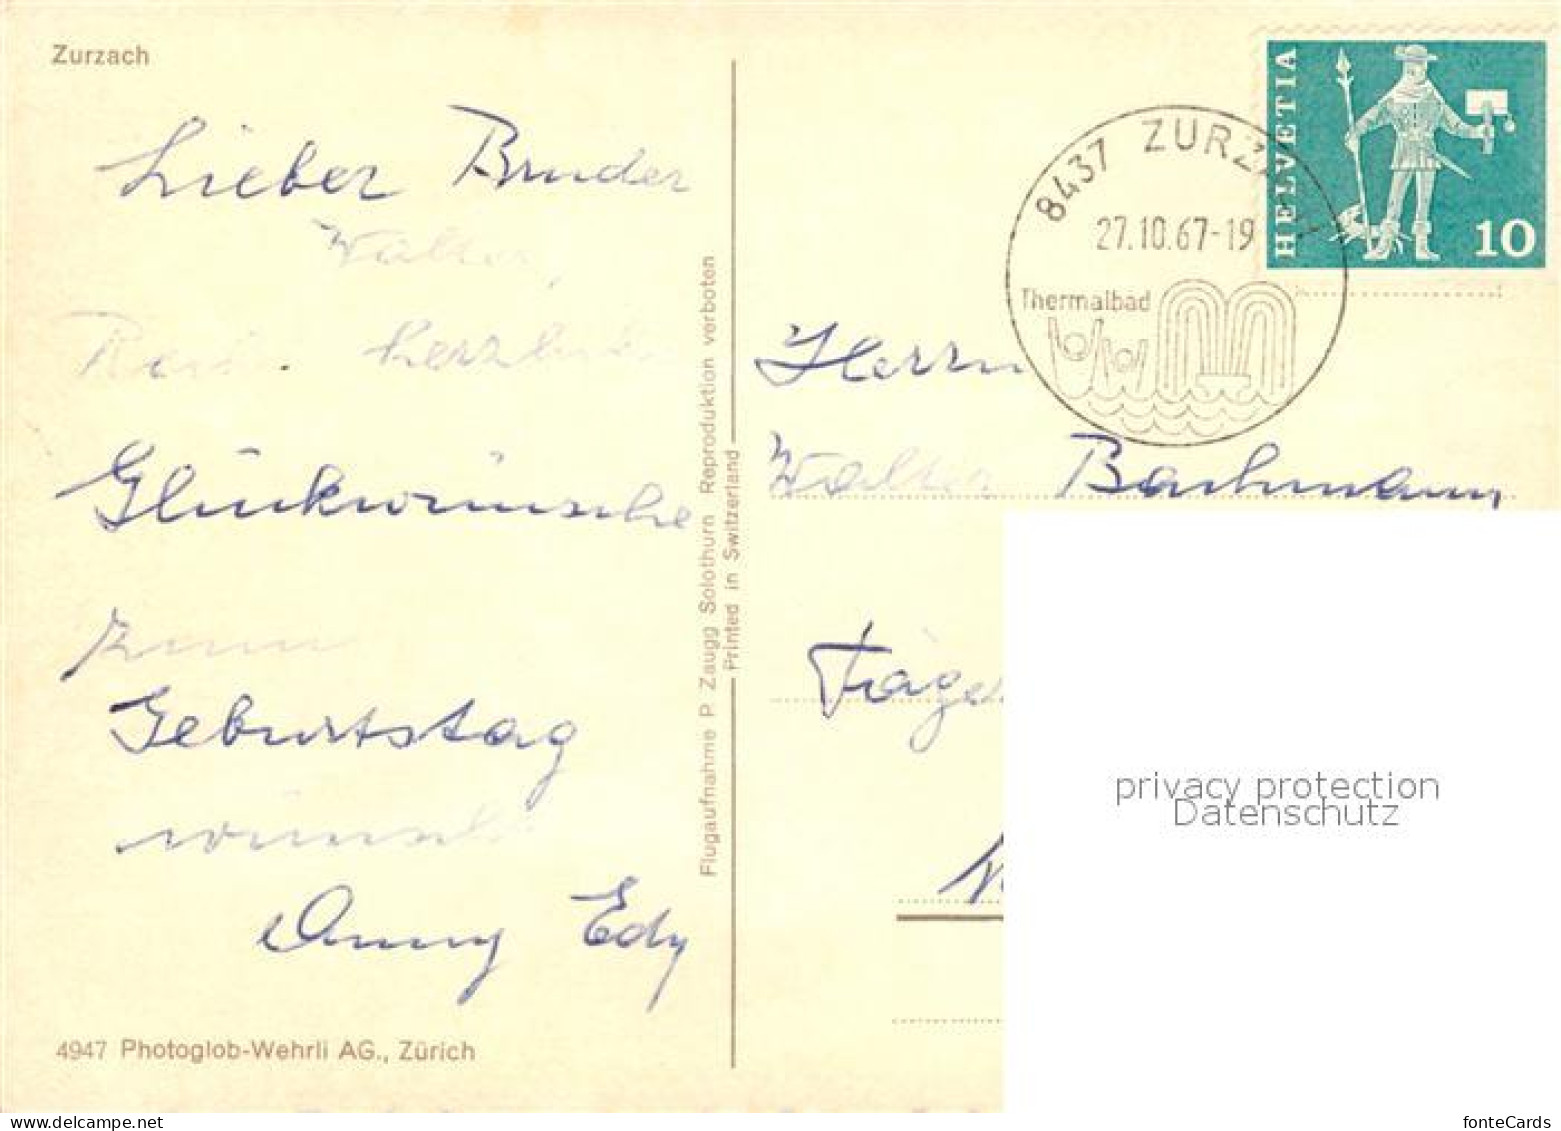 Zurzach
Lieber Bruder
Walter,
herzlichen
Glückwünsche
zum
Geburtstag
wünscht
Anny Edy
4947 Photoglob-Wehrli AG., Zürich
Flugaufnahme P. Zaugg Solothurn Reproduktion verboten
Printed in Switzerland
8437 ZURZACH
27.10.67-19
Thermalbad
HELVETIA
10
Herrn
Walter Bachmann
privacy protection
Datenschutz
www.delcampe.net
fonteCards